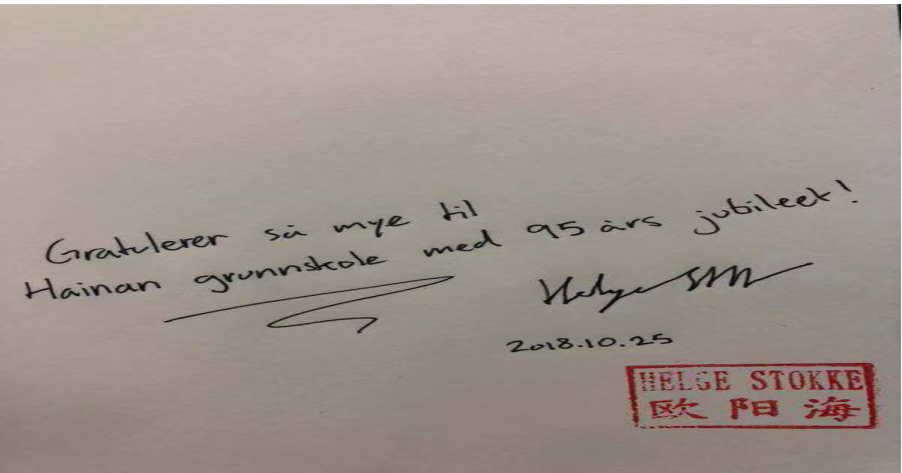 Gratulerer så mye til
Hainan grunnskole med 95 års jubileet!
2018.10.25
HELGE STOKKE
欧阳海